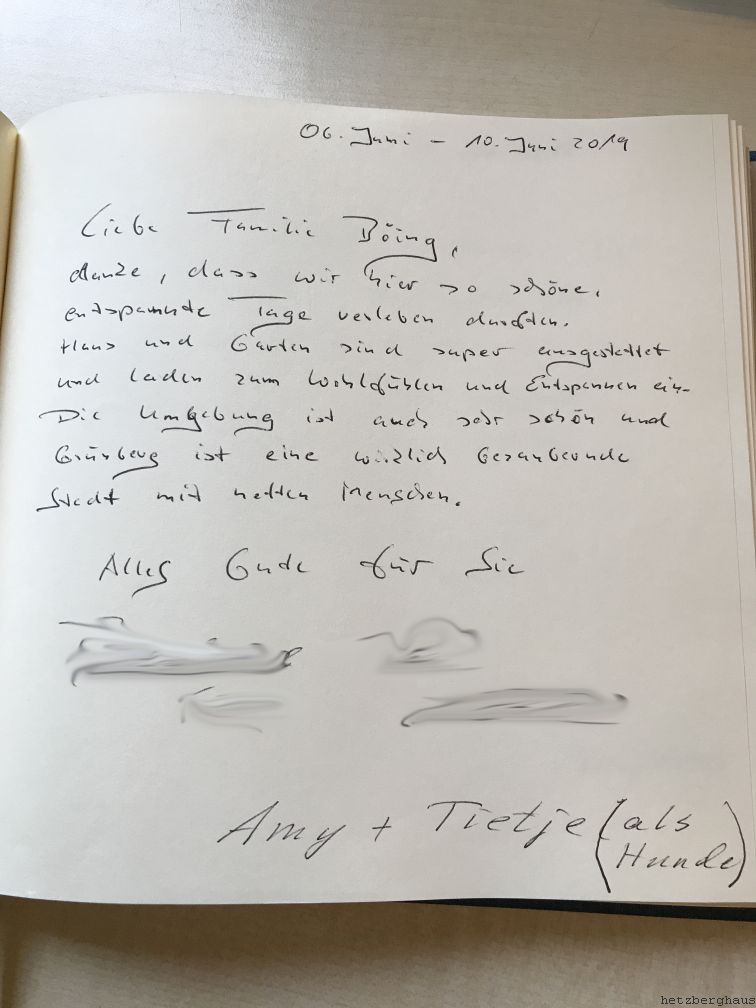 06. Juni - 10. Juni 2019
Liebe Familie Böing,
danke, dass wir hier so schöne,
entspannte Tage verleben durften.
Haus und Garten sind super ausgestattet
und laden zum Wohlfühlen und Entspannen ein.
Die Umgebung ist auch sehr schön und
Grünberg ist eine wirklich bezaubernde
Stadt mit netten Menschen.
Alles Gute für Sie
Amy + Tietje (als
Hunde)
hetzberghaus